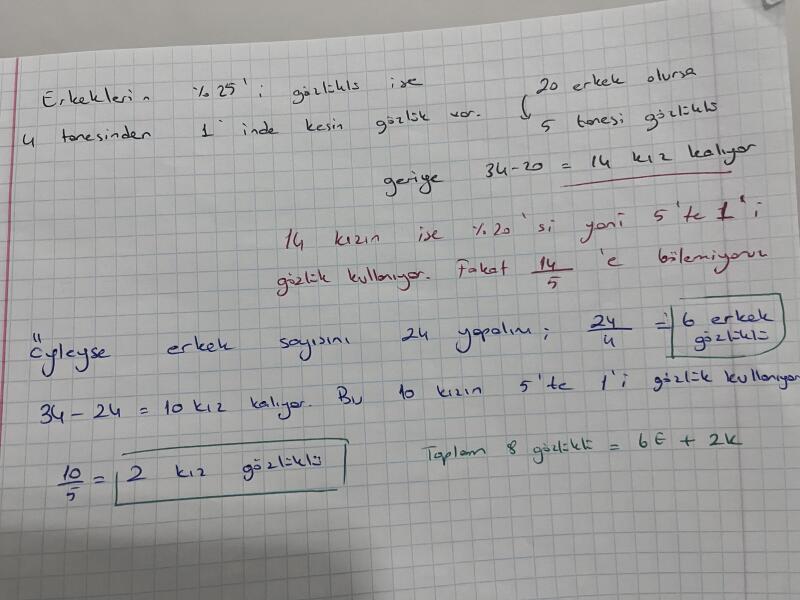 Erkeklerin %25'i gözlüklü ise
4 tanesinden 1'inde kesin gözlük var.
20 erkek olursa
5 tanesi gözlüklü
geriye 34-20 = 14 kız kalıyor
14 kızın ise %20'si yani 5'te 1'i
gözlük kullanıyor. Fakat 14/5 'e bölemiyoruz
Öyleyse erkek sayısını 24 yapalım; 24/4 = 6 erkek gözlüklü
34-24 = 10 kız kalıyor. Bu 10 kızın 5'te 1'i gözlük kullanıyor
10/5 = 2 kız gözlüklü
Toplam 8 gözlüklü = 6E + 2K